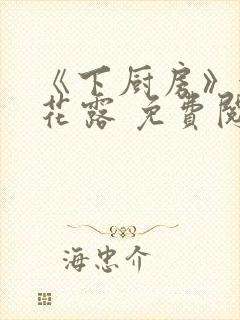 《下厨房》
花露 免費閱
海忠介